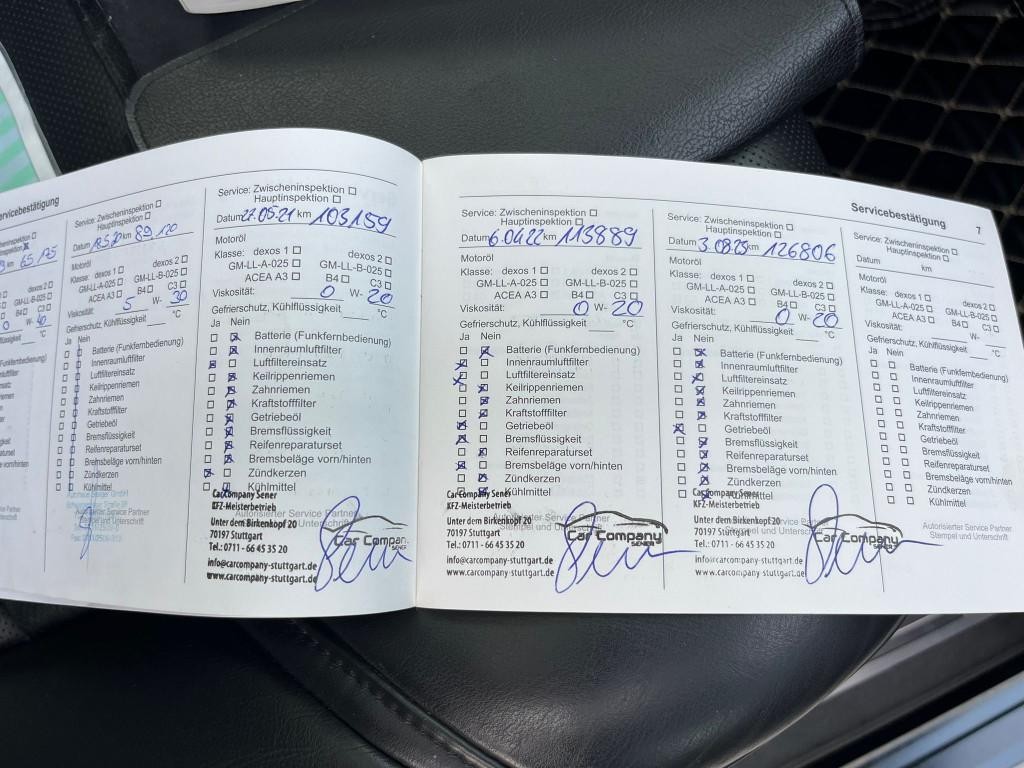 Servicebestätigung
Service: Zwischeninspektion
Hauptinspektion
Datum km 89 120
Motoröl
Klasse: dexos 1 dexos 2
GM-LL-A-025 GM-LL-B-025
ACEA A3 B4 C3
Viskosität: 5 W- 30
Gefrierschutz, Kühlflüssigkeit °C
Ja Nein
Batterie (Funkfernbedienung)
Innenraumluftfilter
Luftfiltereinsatz
Keilrippenriemen
Zahnriemen
Kraftstofffilter
Getriebeöl
Bremsflüssigkeit
Reifenreparaturset
Bremsbeläge vorn/hinten
Zündkerzen
Kühlmittel
Service: Zwischeninspektion
Hauptinspektion
Datum 27.05.21 km 103159
Motoröl
Klasse: dexos 1 dexos 2
GM-LL-A-025 GM-LL-B-025
ACEA A3 B4 C3
Viskosität: 0 W- 20
Gefrierschutz, Kühlflüssigkeit °C
Ja Nein
Batterie (Funkfernbedienung)
Innenraumluftfilter
Luftfiltereinsatz
Keilrippenriemen
Zahnriemen
Kraftstofffilter
Getriebeöl
Bremsflüssigkeit
Reifenreparaturset
Bremsbeläge vorn/hinten
Zündkerzen
Kühlmittel
Car Company Sener
KFZ-Meisterbetrieb
Unter dem Birkenkopf 20
70197 Stuttgart
Tel.: 0711 - 66 45 35 20
info@carcompany-stuttgart.de
www.carcompany-stuttgart.de
Car Company
SENER
Service: Zwischeninspektion
Hauptinspektion
Datum 6.04.22 km 113889
Motoröl
Klasse: dexos 1 dexos 2
GM-LL-A-025 GM-LL-B-025
ACEA A3 B4 C3
Viskosität: 0 W- 20
Gefrierschutz, Kühlflüssigkeit °C
Ja Nein
Batterie (Funkfernbedienung)
Innenraumluftfilter
Luftfiltereinsatz
Keilrippenriemen
Zahnriemen
Kraftstofffilter
Getriebeöl
Bremsflüssigkeit
Reifenreparaturset
Bremsbeläge vorn/hinten
Zündkerzen
Kühlmittel
Car Company Sener
KFZ-Meisterbetrieb
Autorisierter Service Partner
Stempel und Unterschrift
Unter dem Birkenkopf 20
70197 Stuttgart
Tel.: 0711 - 66 45 35 20
info@carcompany-stuttgart.de
www.carcompany-stuttgart.de
Car Company
SENER
Servicebestätigung 7
Service: Zwischeninspektion
Hauptinspektion
Datum 3.08.23 km 126806
Motoröl
Klasse: dexos 1 dexos 2
GM-LL-A-025 GM-LL-B-025
ACEA A3 B4 C3
Viskosität: 0 W- 20
Gefrierschutz, Kühlflüssigkeit °C
Ja Nein
Batterie (Funkfernbedienung)
Innenraumluftfilter
Luftfiltereinsatz
Keilrippenriemen
Zahnriemen
Kraftstofffilter
Getriebeöl
Bremsflüssigkeit
Reifenreparaturset
Bremsbeläge vorn/hinten
Zündkerzen
Kühlmittel
Car Company Sener
KFZ-Meisterbetrieb
Unter dem Birkenkopf 20
70197 Stuttgart
Tel.: 0711 - 66 45 35 20
info@carcompany-stuttgart.de
www.carcompany-stuttgart.de
Car Company
SENER
Service: Zwischeninspektion
Hauptinspektion
Datum km
Motoröl
Klasse: dexos 1 dexos 2
GM-LL-A-025 GM-LL-B-025
ACEA A3 B4 C3
Viskosität: W-
Gefrierschutz, Kühlflüssigkeit °C
Ja Nein
Batterie (Funkfernbedienung)
Innenraumluftfilter
Luftfiltereinsatz
Keilrippenriemen
Zahnriemen
Kraftstofffilter
Getriebeöl
Bremsflüssigkeit
Reifenreparaturset
Bremsbeläge vorn/hinten
Zündkerzen
Kühlmittel
Autorisierter Service Partner
Stempel und Unterschrift